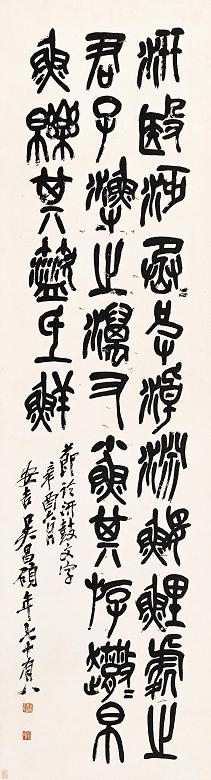 汧殹沔丞皮淖淵鰋鯉處之
君子漁之澫又小魚其斿䟃帛
魚皪其盜氐鮮
節臨汧鼓文字
辛酉
安吉吳昌碩年七十有八